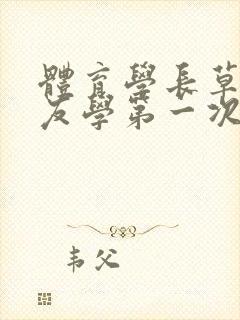 體育學長草
友學第一次
韦父